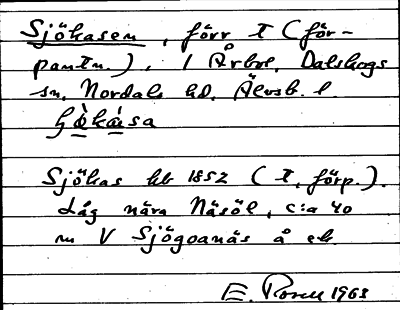 Sjökasen, förr t (för-
pantn.), 1 Årbol, Dalskogs
sn, Nordals hd, Älvsb. l.
Sjökas hb 1852 (t, förp.).
Låg nära Näsöl, c:a 40
m V Sjögoanäs å ek
E. 1963